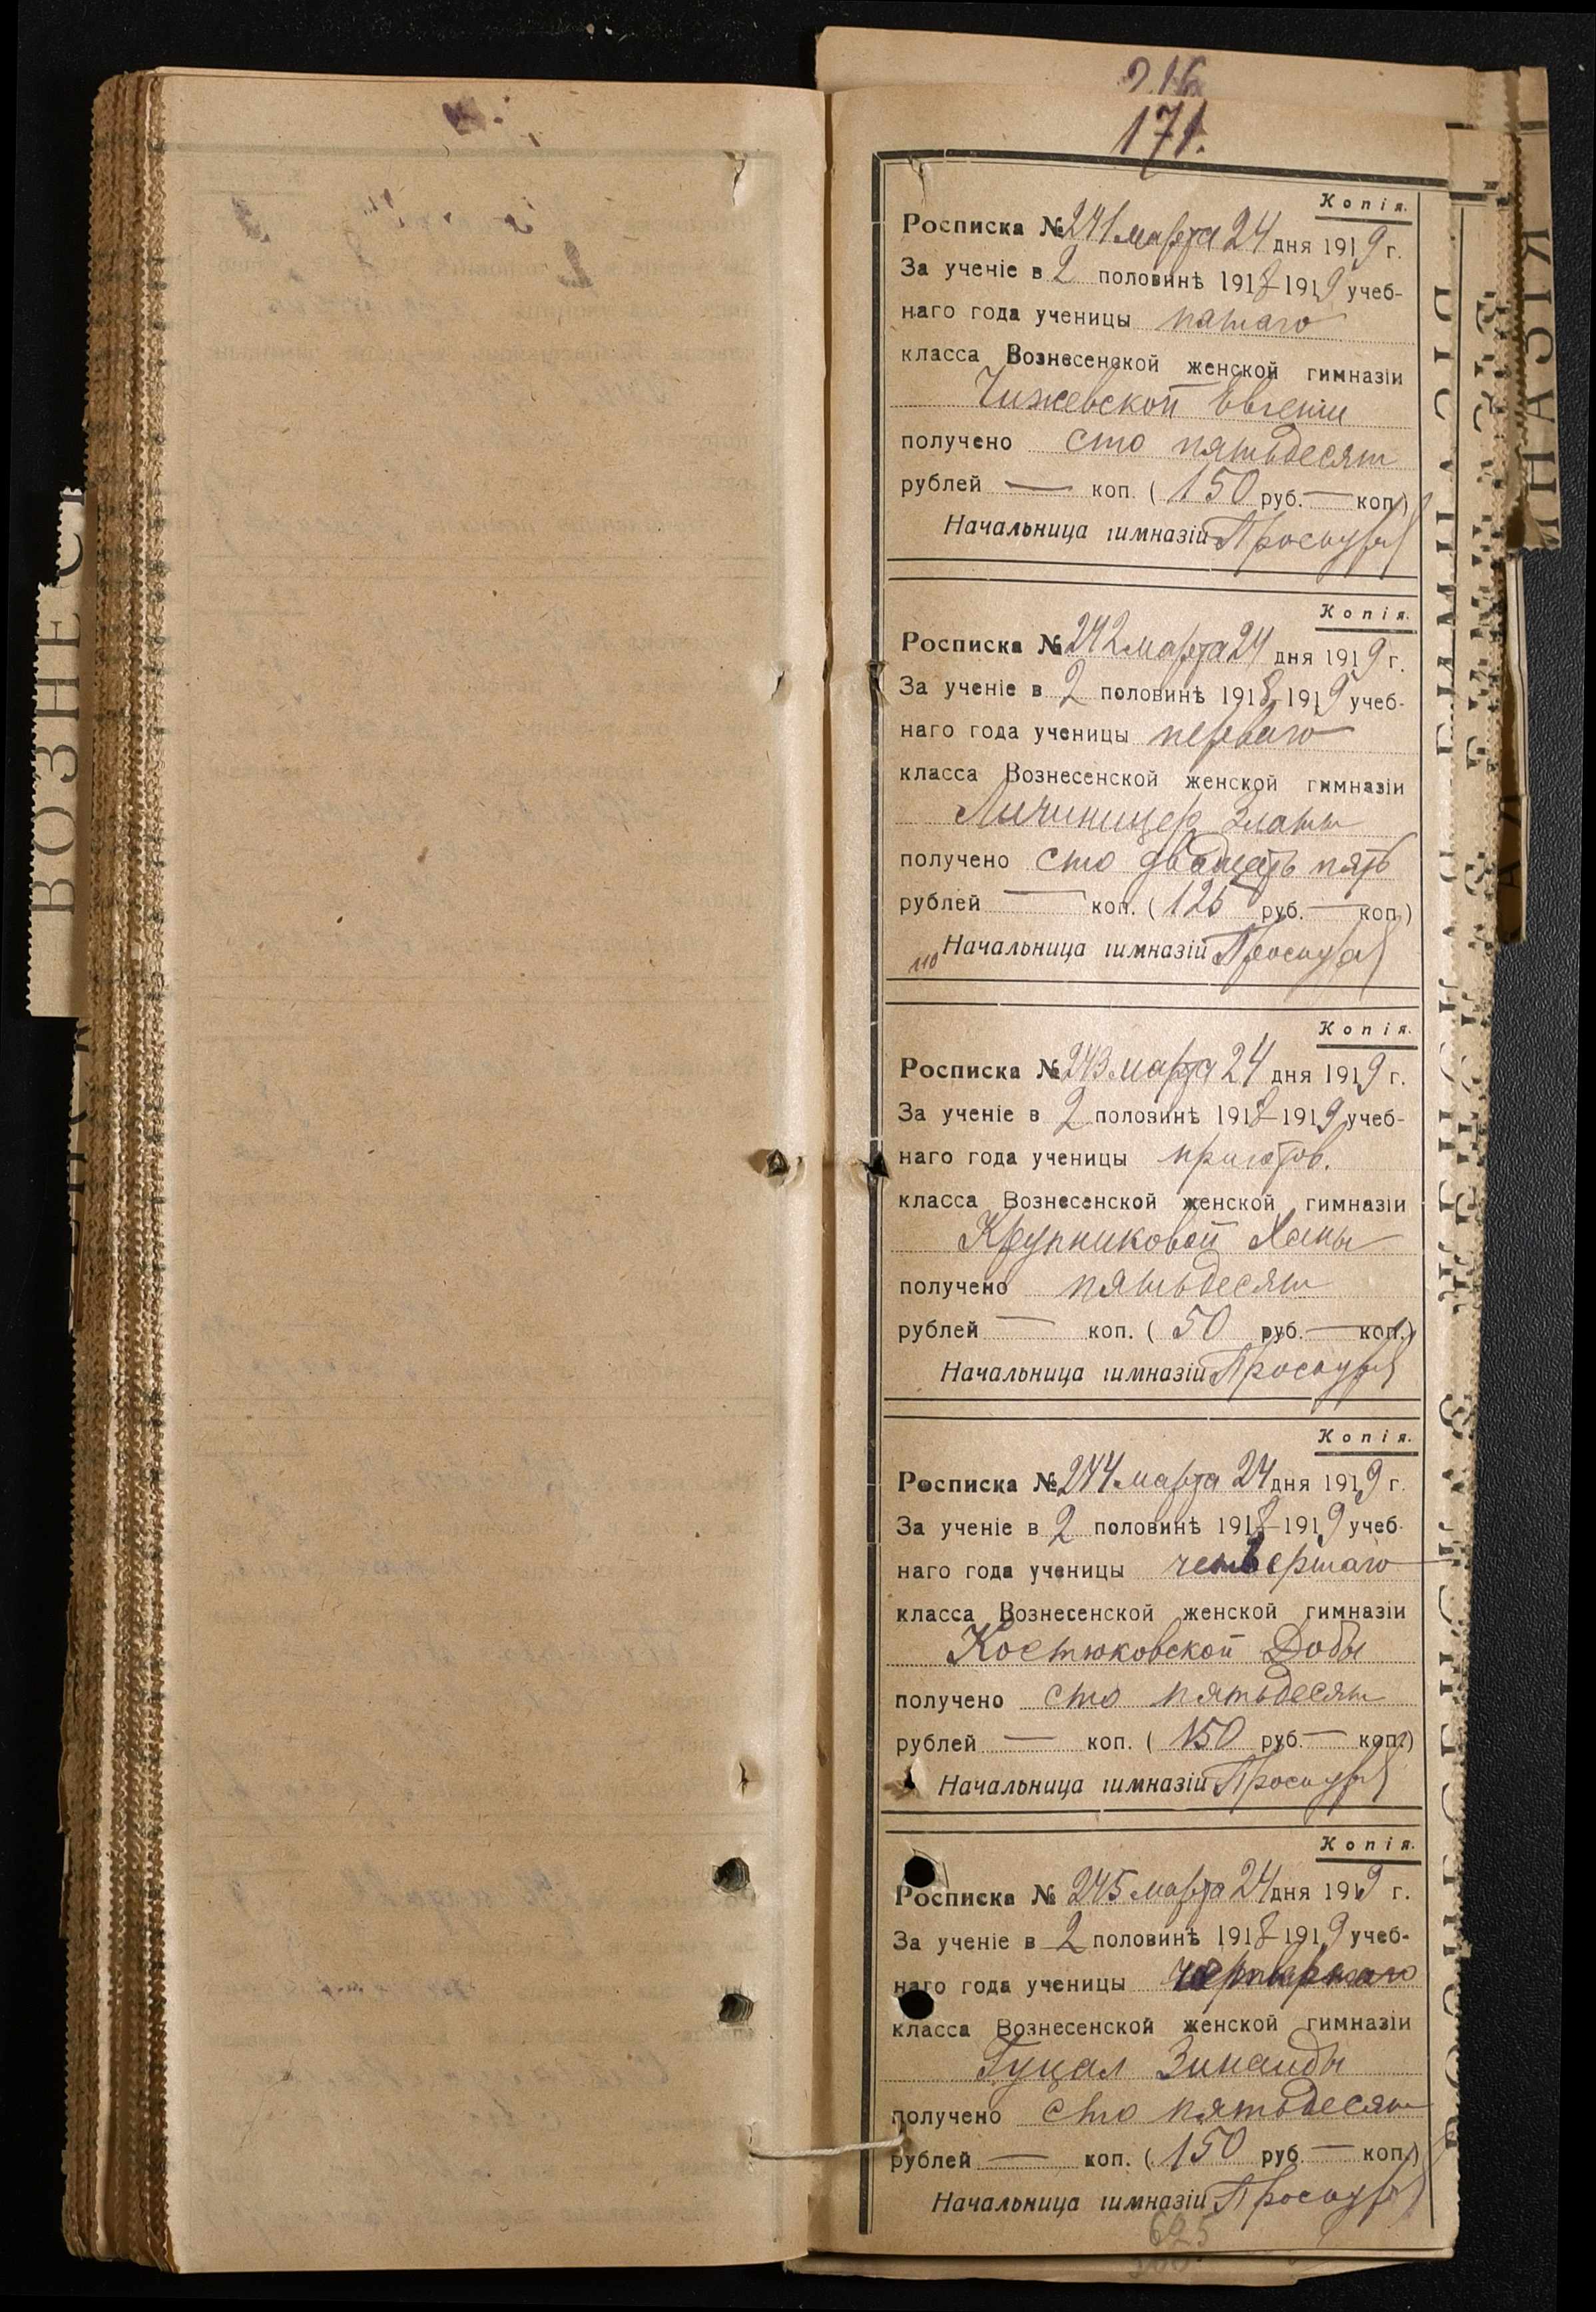 216
171.
Копія.
Росписка № 241 марта 24 дня 1919 г.
За ученіе в 2 половинѣ 1918-1919 учеб-
наго года ученицы пятаго
класса Вознесенской женской гимназіи
Чижевской Евгеніи
получено сто пятьдесят
рублей — коп. (150 руб. — коп.)
Начальница гимназіи
Копія.
Росписка № 242 марта 24 дня 1919 г.
За ученіе в 2 половинѣ 1918-1919 учеб-
наго года ученицы перваго
класса Вознесенской женской гимназіи
Личиницер Златы
получено сто двадцать пять
рублей — коп. (125 руб. — коп.)
Начальница гимназіи
Копія.
Росписка № 243 марта 24 дня 1919 г.
За ученіе в 2 половинѣ 1918-1919 учеб-
наго года ученицы приготов.
класса Вознесенской женской гимназіи
Крупниковой Ханы
получено пятьдесят
рублей — коп. (50 руб. — коп.)
Начальница гимназіи
Копія.
Росписка № 244 марта 24 дня 1919 г.
За ученіе в 2 половинѣ 1918-1919 учеб-
наго года ученицы четвертаго
класса Вознесенской женской гимназіи
Костюковской Добы
получено сто пятьдесят
рублей — коп. (150 руб. — коп.)
Начальница гимназіи
Копія.
Росписка № 245 марта 24 дня 1919 г.
За ученіе в 2 половинѣ 1918-1919 учеб-
наго года ученицы четвертаго
класса Вознесенской женской гимназіи
Гуцал Зинаиды
получено сто пятьдесят
рублей — коп. (150 руб. — коп.)
Начальница гимназіи
625
ВОЗНЕС